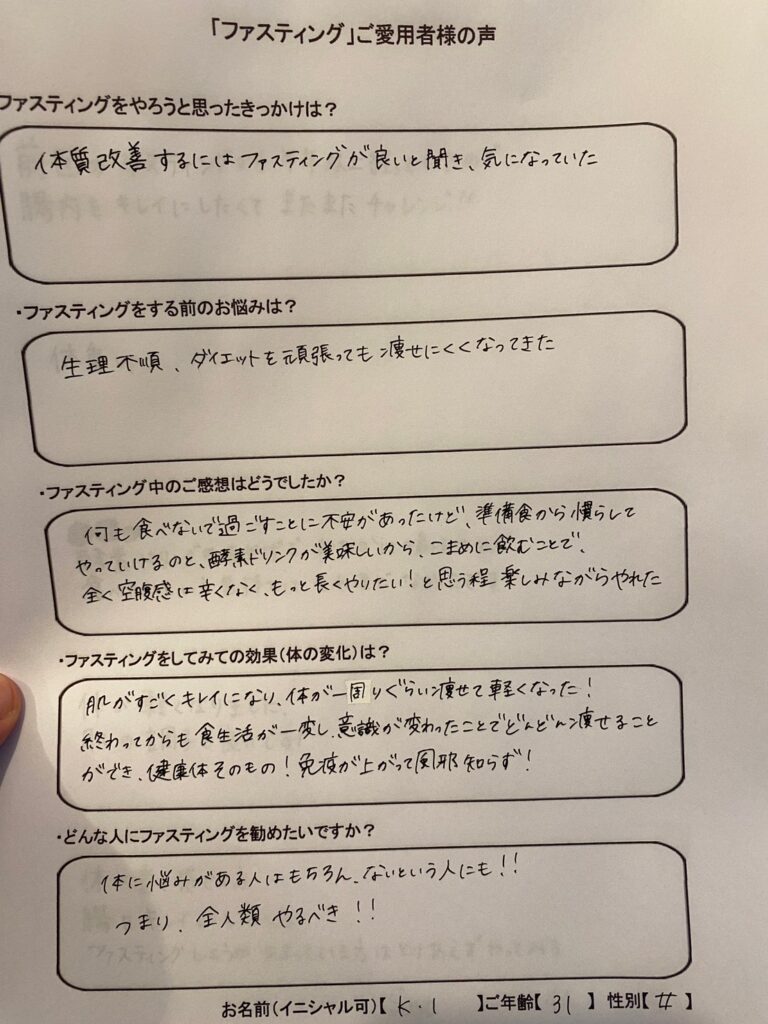 「ファスティング」ご愛用者様の声
ファスティングをやろうと思ったきっかけは?
体質改善するにはファスティングが良いと聞き、気になっていた
・ファスティングをする前のお悩みは?
生理不順、ダイエットを頑張っても痩せにくくなってきた
・ファスティング中のご感想はどうでしたか?
何も食べないで過ごすことに不安があったけど、準備食から慣らして
やっていけるのと、酵素ドリンクが美味しいから、こまめに飲むことで、
全く空腹感は辛くなく、もっと長くやりたい!と思う程楽しみながらやれた
・ファスティングをしてみての効果(体の変化)は?
肌がすごくキレイになり、体が一周りぐらい痩せて軽くなった!
終わってからも食生活が一変し、意識が変わったことでどんどん痩せること
ができ、健康体そのもの!免疫が上がって風邪知らず!
・どんな人にファスティングを勧めたいですか?
体に悩みがある人はもちろん、ないという人にも!!
つまり、全人類やるべき!!
お名前(イニシャル可)【 K・I 】ご年齢【 31 】 性別【 女 】